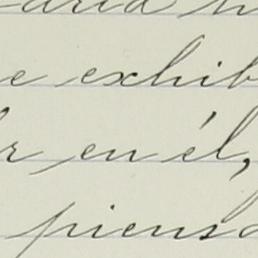 e exhib
r en él,
piensa